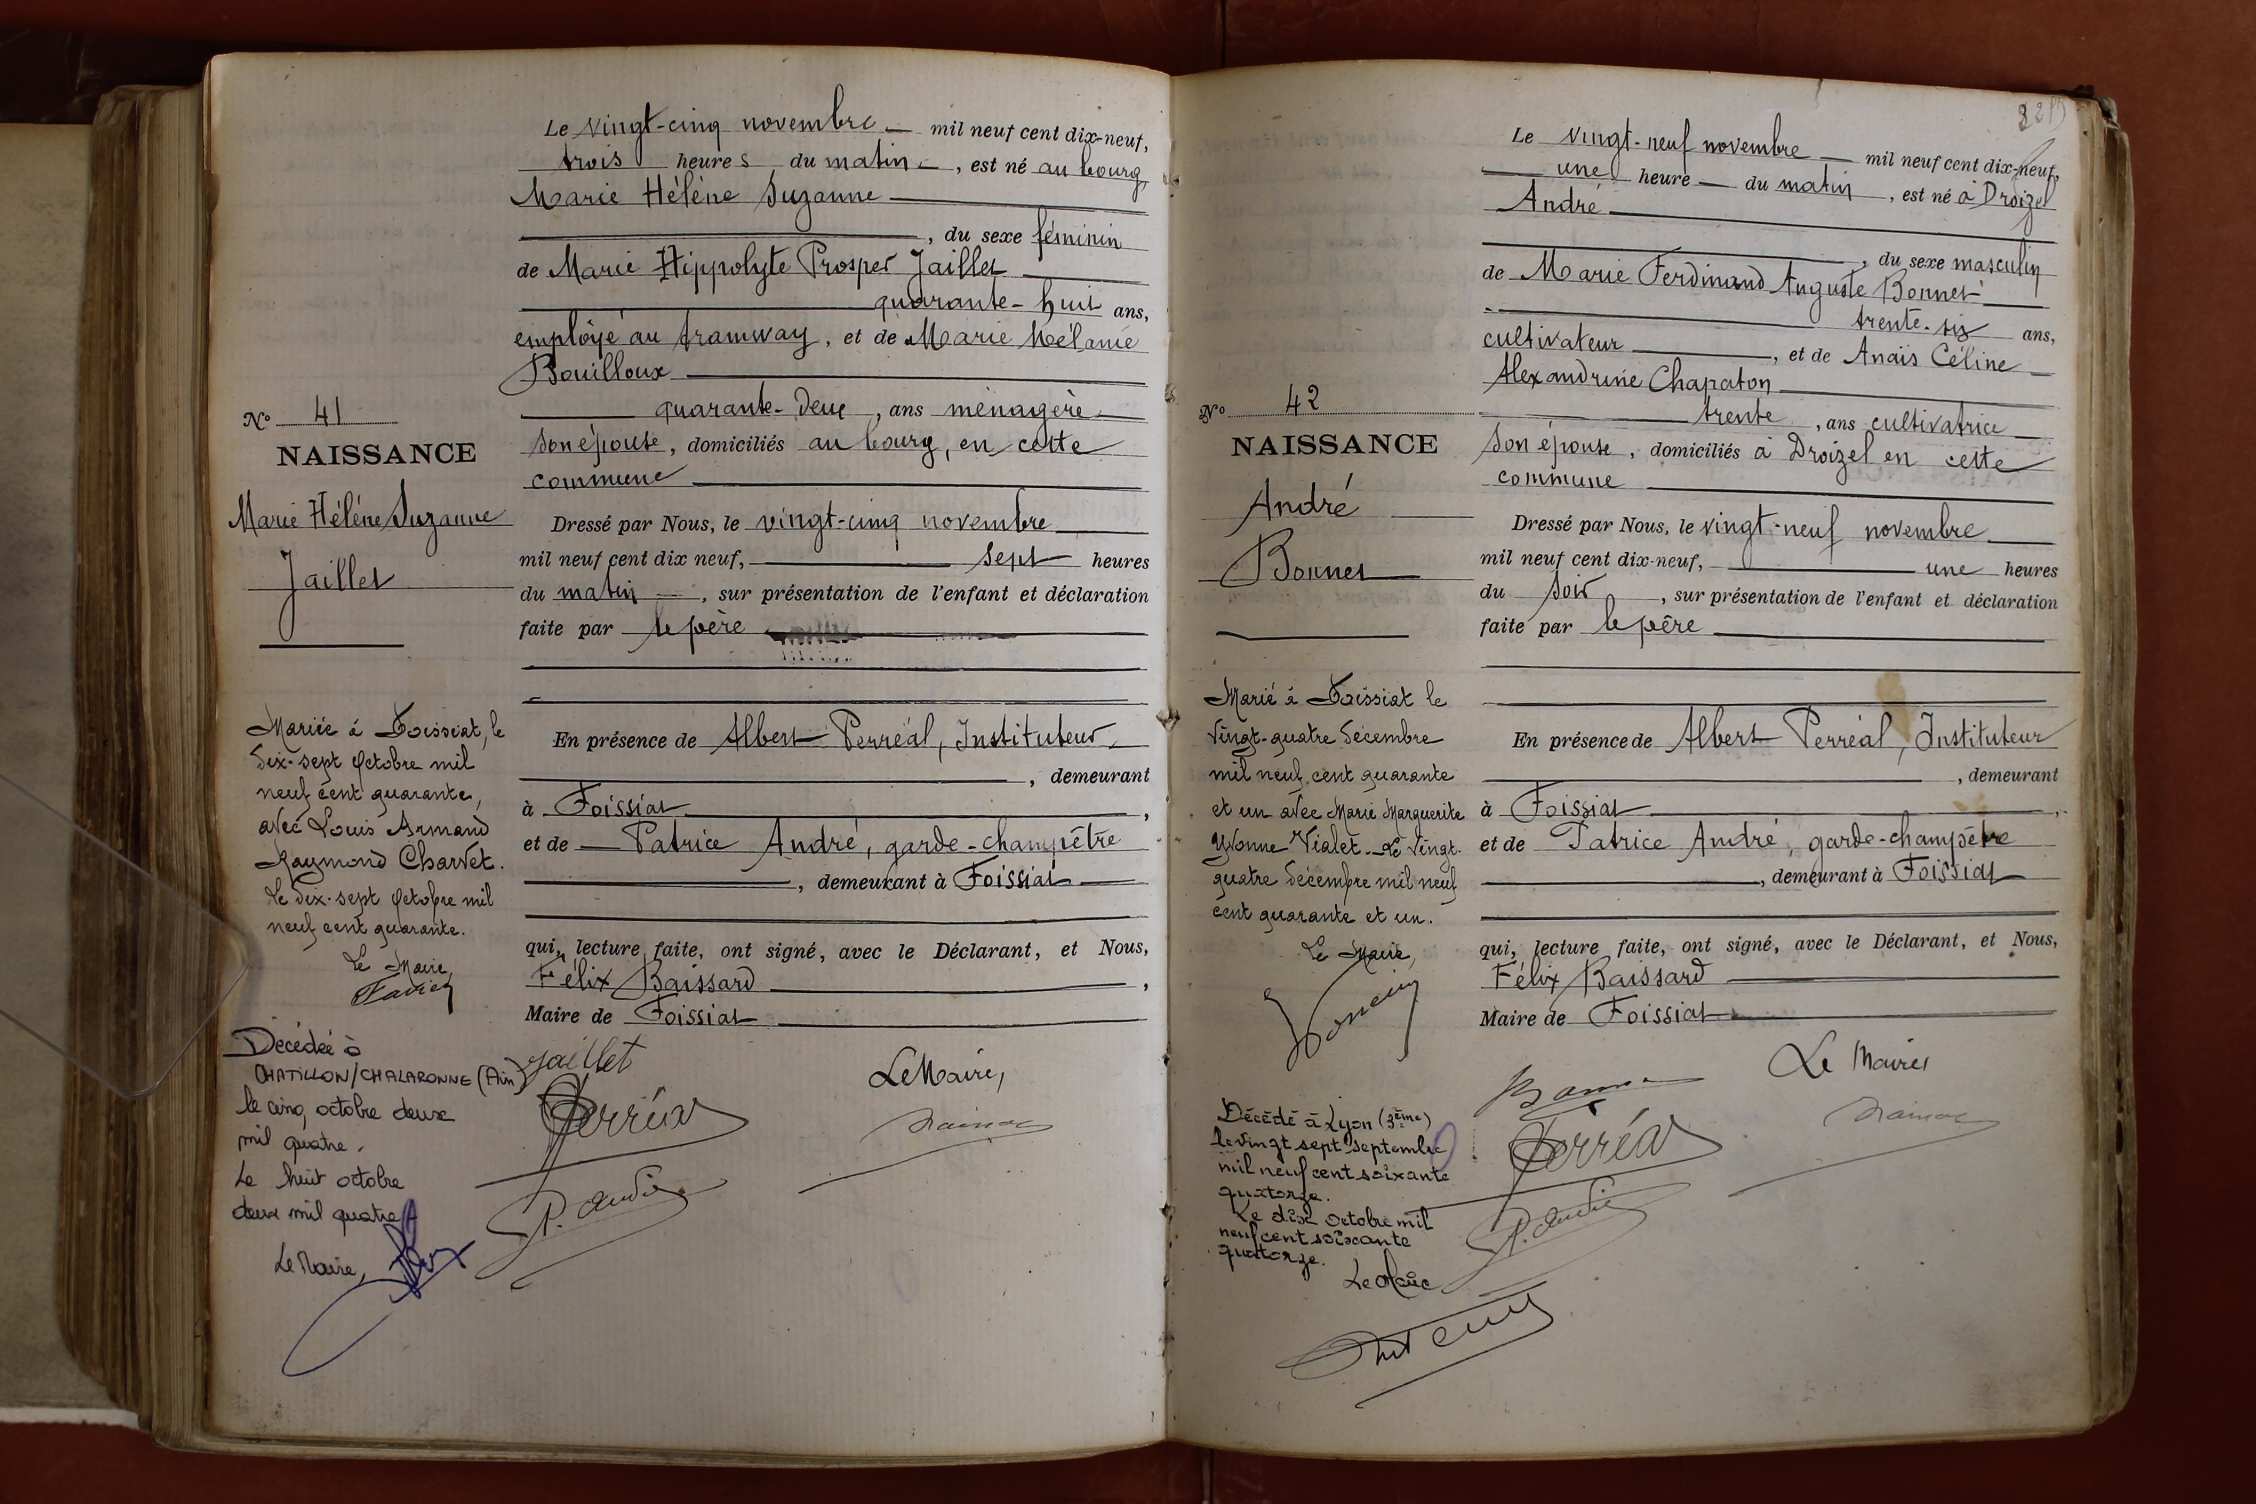 Le vingt-cinq novembre — mil neuf cent dix-neuf,
trois heures du matin —, est né au bourg,
Marie Hélène Suzanne
, du sexe féminin
de Marie Hippolyte Prosper Jaillet
quarante-huit ans,
employé au tramway, et de Marie Mélanie
Bouilloux
quarante-deux, ans ménagère
son épouse, domiciliés au bourg, en cette
commune
Dressé par Nous, le vingt-cinq novembre
mil neuf cent dix neuf, sept heures
du matin —, sur présentation de l'enfant et déclaration
faite par le père
En présence de Albert Perréal, Instituteur
, demeurant
à Foissiat,
et de Patrice André, garde-champêtre
, demeurant à Foissiat
qui, lecture faite, ont signé, avec le Déclarant, et Nous,
Félix Baissard,
Maire de Foissiat
Jaillet
Le Maire,
Perréal
P. André
No 41
NAISSANCE
Marie Hélène Suzanne
Jaillet
Mariée à Foissiat, le
dix-sept octobre mil
neuf cent quarante,
avec Louis Armand
Raymond Charvet.
Le dix-sept octobre mil
neuf cent quarante.
Le Maire
Décédée à
CHATILLON/CHALARONNE (Ain)
le cinq octobre deux
mil quatre.
Le huit octobre
deux mil quatre
Le Maire,
Le vingt-neuf novembre — mil neuf cent dix-neuf,
une heure — du matin, est né à Droizel
André
, du sexe masculin
de Marie Ferdinand Auguste Bonnet
trente-six ans,
cultivateur, et de Anaïs Céline
Alexandrine Chapaton
trente, ans cultivatrice
son épouse, domiciliés à Droizel en cette
commune
Dressé par Nous, le vingt-neuf novembre
mil neuf cent dix-neuf, une heures
du soir, sur présentation de l'enfant et déclaration
faite par le père
En présence de Albert Perréal, Instituteur
, demeurant
à Foissiat,
et de Patrice André, garde-champêtre
, demeurant à Foissiat
qui, lecture faite, ont signé, avec le Déclarant, et Nous,
Félix Baissard
Maire de Foissiat
Le Maire
Perréal
P. André
No 42
NAISSANCE
André
Bonnet
Marié à Foissiat le
vingt-quatre décembre
mil neuf cent quarante
et un avec Marie Marguerite
Yvonne Vialet. Le vingt-
quatre décembre mil neuf
cent quarante et un.
Le Maire,
Décédé à Lyon (3ème)
le vingt sept septembre
mil neuf cent soixante
quatorze.
Le dix octobre mil
neuf cent soixante
quatorze.
Le Maire